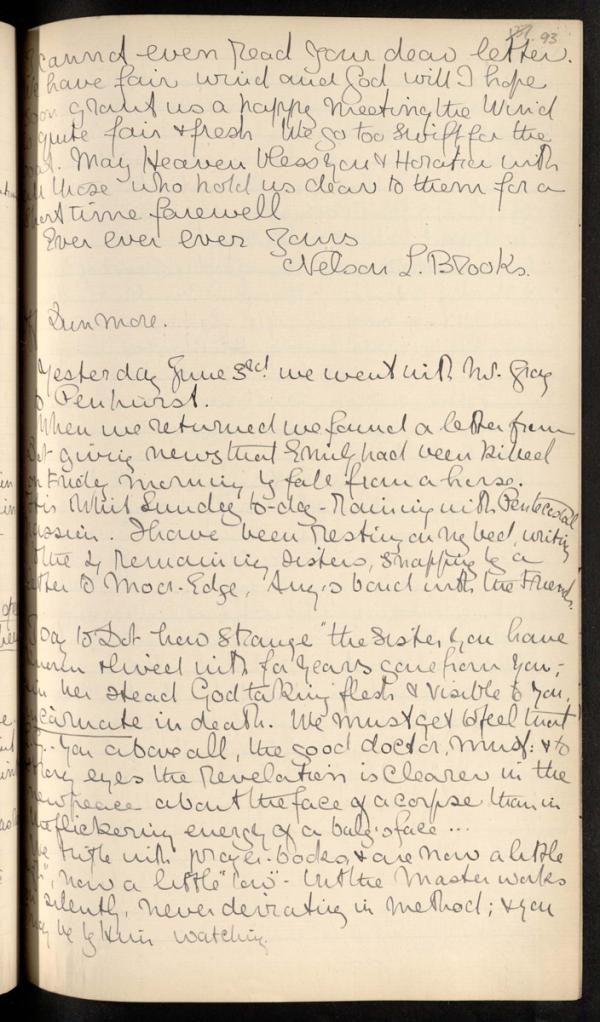 93
cannot even read your dear letter.
have fair wind and God will I hope
soon grant us a happy meeting the Wind
quite fair & fresh We go too swift for the
May Heaven bless you & Horatia with
all those who hold us dear to them for a
short time farewell
Ever ever ever Yours
Nelson L. Brooks.
Dunmore.
Yesterday June 3rd. we went with Mr. Gray
to Penhurst.
When we returned we found a letter from
Dot giving news that Emily had been killed
on Friday morning by fall from a horse.
This Whit Sunday to-day - Raining with Pentecostal
passion. I have been resting on my bed, writing
to the 2 remaining sisters, snapping by a
letter to Moor-Edge, bond with the Friends.
Today to Dot how strange "the sister you have
known & lived with for years gone from you,-
in her stead God taking flesh & visible to you,
incarnate in death. We must get to feel that
You above all, the good doctor, must: & to
many eyes the Revelation is clearer in the
new peace about the face of a corpse than in
the flickering energy of a baby's face ...
We trifle with prayer-books, & are now a little
now a little "low" - but the Master works
on silently, never deviating in method; & you
may be by Him watching.